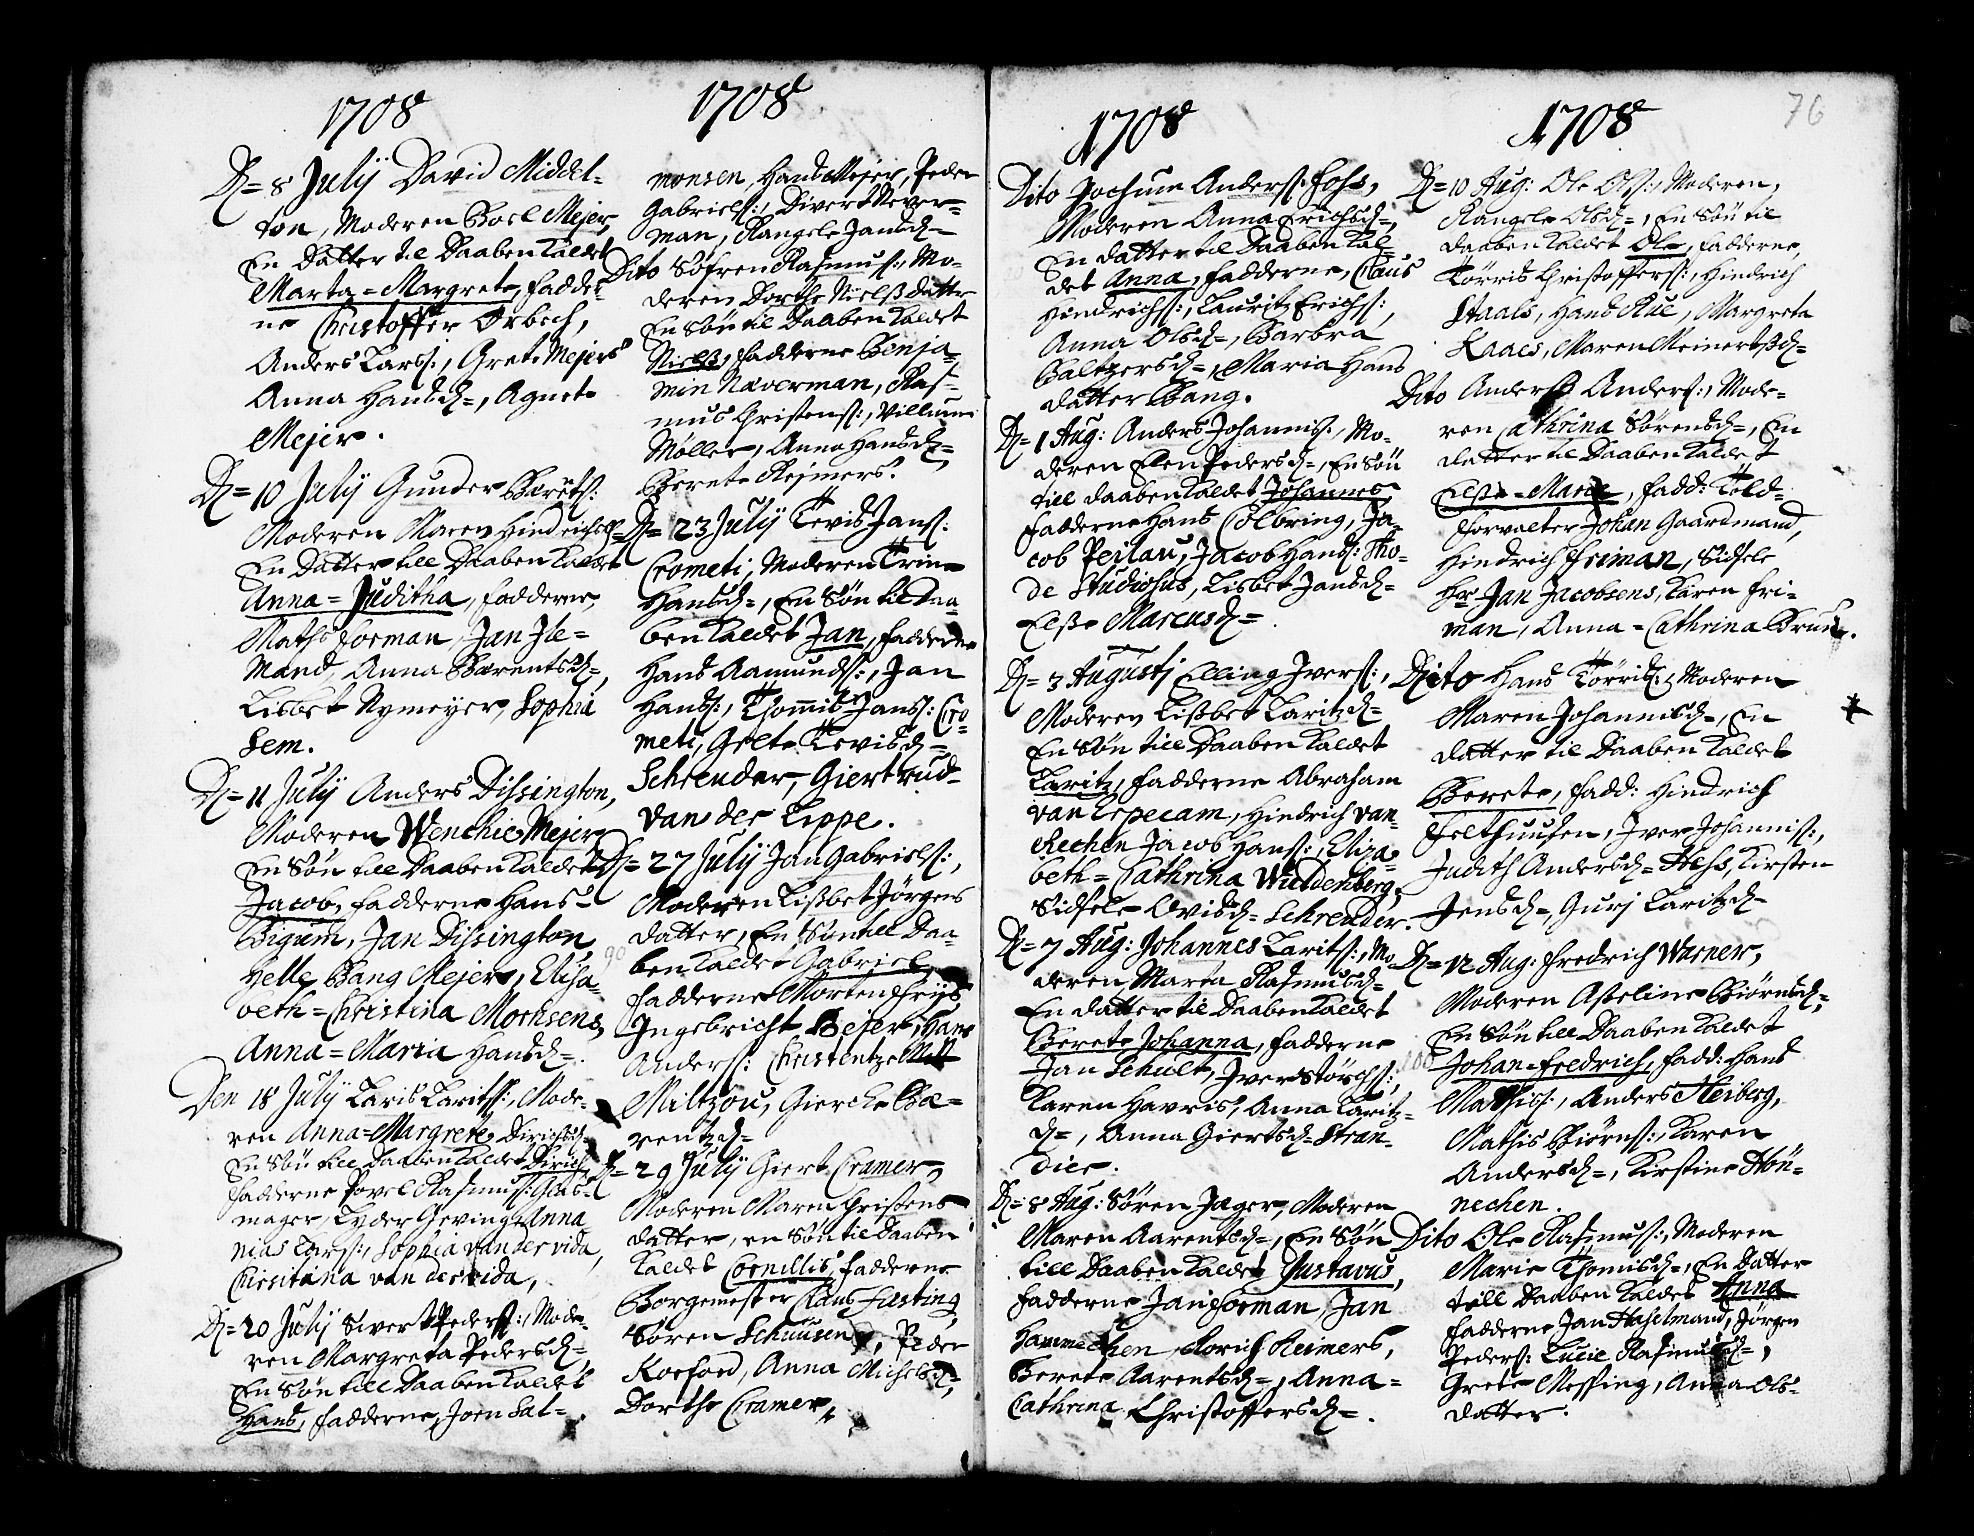 1708
D= 8 Julij David Middel-
ton, Moderen Boel Mejer,
En Datter til Daaben kaldet
Marta=Margrete, fadder-
ne Christoffer Orbech,
Anders Larss:, Grete Mejers
Anna Hansd=, Agnete
Mejer.
D= 10 Julij Gunder Bærets:
Moderen Maren Hindrichsd=
En Datter till Daaben kaldet
Anna=Juditha, fadderne,
Maths Forman, Jan Ile-
Mand, Anna Bærentsd=,
Lisbet Nymeyer, Sophia
Sem.
D= 11 Julij Anders Dissington,
Moderen Wenchie Mejer
En Søn till Daaben kaldet
Jacob, fadderne Hans
Bigum, Jan Dissington,
Helle Bang Mejers, Elisa-
beth=Christina Mochsens,
Anna=Maria Hansd=.
Den 18 Julij Laris Laritss:, Mode-
ren Anna=Margrete Dirichsd=
En Søn till Daaben kaldet Dirich
fadderne Povel Rasmuss:
mager, Lyder Geving, Anna-
nias Larss:, Sophia van der vida,
Chrsitiana van der vida,
D= 20 Julij Siwert Pederss:, Mode-
ren Margreta Pedersd=,
En Søn till Daaben kaldet
Hans, fadderne, Joen Sal-
1708
monsen, Hans Mejer, Peder
Gabrielss:, Divert Never-
man, Rangele Jansd=
Dito Søfren Rasmuss:, Mo-
deren Dorthe Nielss datter
En Søn til Daaben kaldet
Nielss, fadderne Benja-
min Næverman, Ras-
mus Christenss:, Villum
Møller, Anna Hansd=,
Berete Rejmers.
D= 23 Julij Tevis Janss:
Crometi, Moderen Trine
Hansd=, En Søn til Daa-
ben kaldet Jan, fadderne
Hans Aamundss:, Jan
Hanss:, Thomis Janss: Cro-
meti, Gelte Tevisd=
Schreuder, Giertrud
van der Lippe.
D= 27 Julij Jan Gabrielss:,
Moderen Lissbet Jørgens
datter, En Søn till Daa-
ben kaldet Gabriel,
fadderne Morten Frijs,
Ingebricht Bejer, Hans
Anderss: Christentze
Miltzou, Giercke Bæ-
rentzd=
D= 29 Julij Giert Cramer,
Moderen Maren Christens
datter, en Søn til Daaben
kaldet Cornillis, fadderne
Borgemester Claus Fasting
Søren Schuusen, Peder
Kofoed, Anna Michelsd=,
Dorthe Cramer,,
90
1708
Dito Jochum Anderss: Fohs,
Moderen Anna Erichsd=,
En datter til Daaben kal-
det Anna, fadderne, Claus
Hindrichss:, Lauritz Erichss:,
Anna Olsd=, Barbra
Baltzersd=, Maria Hans
datter Bang.
D= 1 Aug: Anders Johanniss:, Mo-
deren Elen Pedersd=, En Søn
till daaben kaldet Johannes,
fadderne Hans Colbring, Ja-
cob Peilau, Jacob Hanss: Tho-
de Studiosus, Lisbet Jansd=
Elsse Marcusd=.
D= 3 Augustj Elling Iverss:,
Moderen Lissbet Laritzd=
En Søn till Daaben kaldet
Laritz, fadderne Abraham
van Lepecam, Hindrich van-
Rechen Jacob Hanss:, Eliza-
beth=Cathrina Wuldenberg,
Sidsele Ovisd= Schreuder.
D= 7 Aug: Johannes Laritss:, Mo-
deren Marta Rasmusd=
En datter til Daaben kaldet
Berete Johanna, fadderne
Jan Schult, Iver Størchss:,
Karen Havris, Anna Laritz-
d=, Anna Giertsd= Stran-
dier.
D= 8 Aug: Søren Jæger, Moderen
Maren Aarentsd=, En Søn
till Daaben kaldet Gustavus,
fadderne Jan Forman, Jan
Hammechen, Moris Reimers,
Berete Aarentsd=, Anna=
Cathrina Christoffersd=.
100
1708
76
D= 10 Aug: Ole Olss:, Moderen,
Rangele Olsd=, En Søn til
daaben kaldet Ole, fadderne,
Tørris Christofferss:, Hindrich
Staals, Hans Rue, Margreta
Kaaes, Maren Meinertssd=
Dito Anders Anderss:, Mode-
ren Cathrina Sørensd=, En
datter til Daaben kaldet
Elsse=Marie, fadd: Told-
forvalter Johan Gaardmand,
Hindrich Friman, Sidsele
Hr Jan Jacobsens, Karen Fri-
man, Anna=Cathrina Bruun.
Dito Hans Tørriss:, Moderen
Maren Johannisd=, En
datter til Daaben kaldet
Berete, fadd: Hindrich
Felthuusen, Iver Johanniss:,
Judith Andersd= Hess, Kirsten
Jensd=, Guri Laritzd=
D= 12 Aug: Fredrich Warner,
Moderen Asseline Biørnsd=,
En Søn till Daaben kaldet
Johan=Fredrich, fadd: Hans
Mathiss:, Anders Heiberg,
Mathis Biørnss:, Karen
Andersd=, Kirstine Høn-
nechen.
Dito Ole Rasmuss:, Moderen
Marie Thomisd=, En Datter
till Daaben kaldet Anna
fadderne Jan Haselmand, Jørgen
Pederss: Lucie Rasmusd=,
Grete Messing, Anna Ols-
datter.